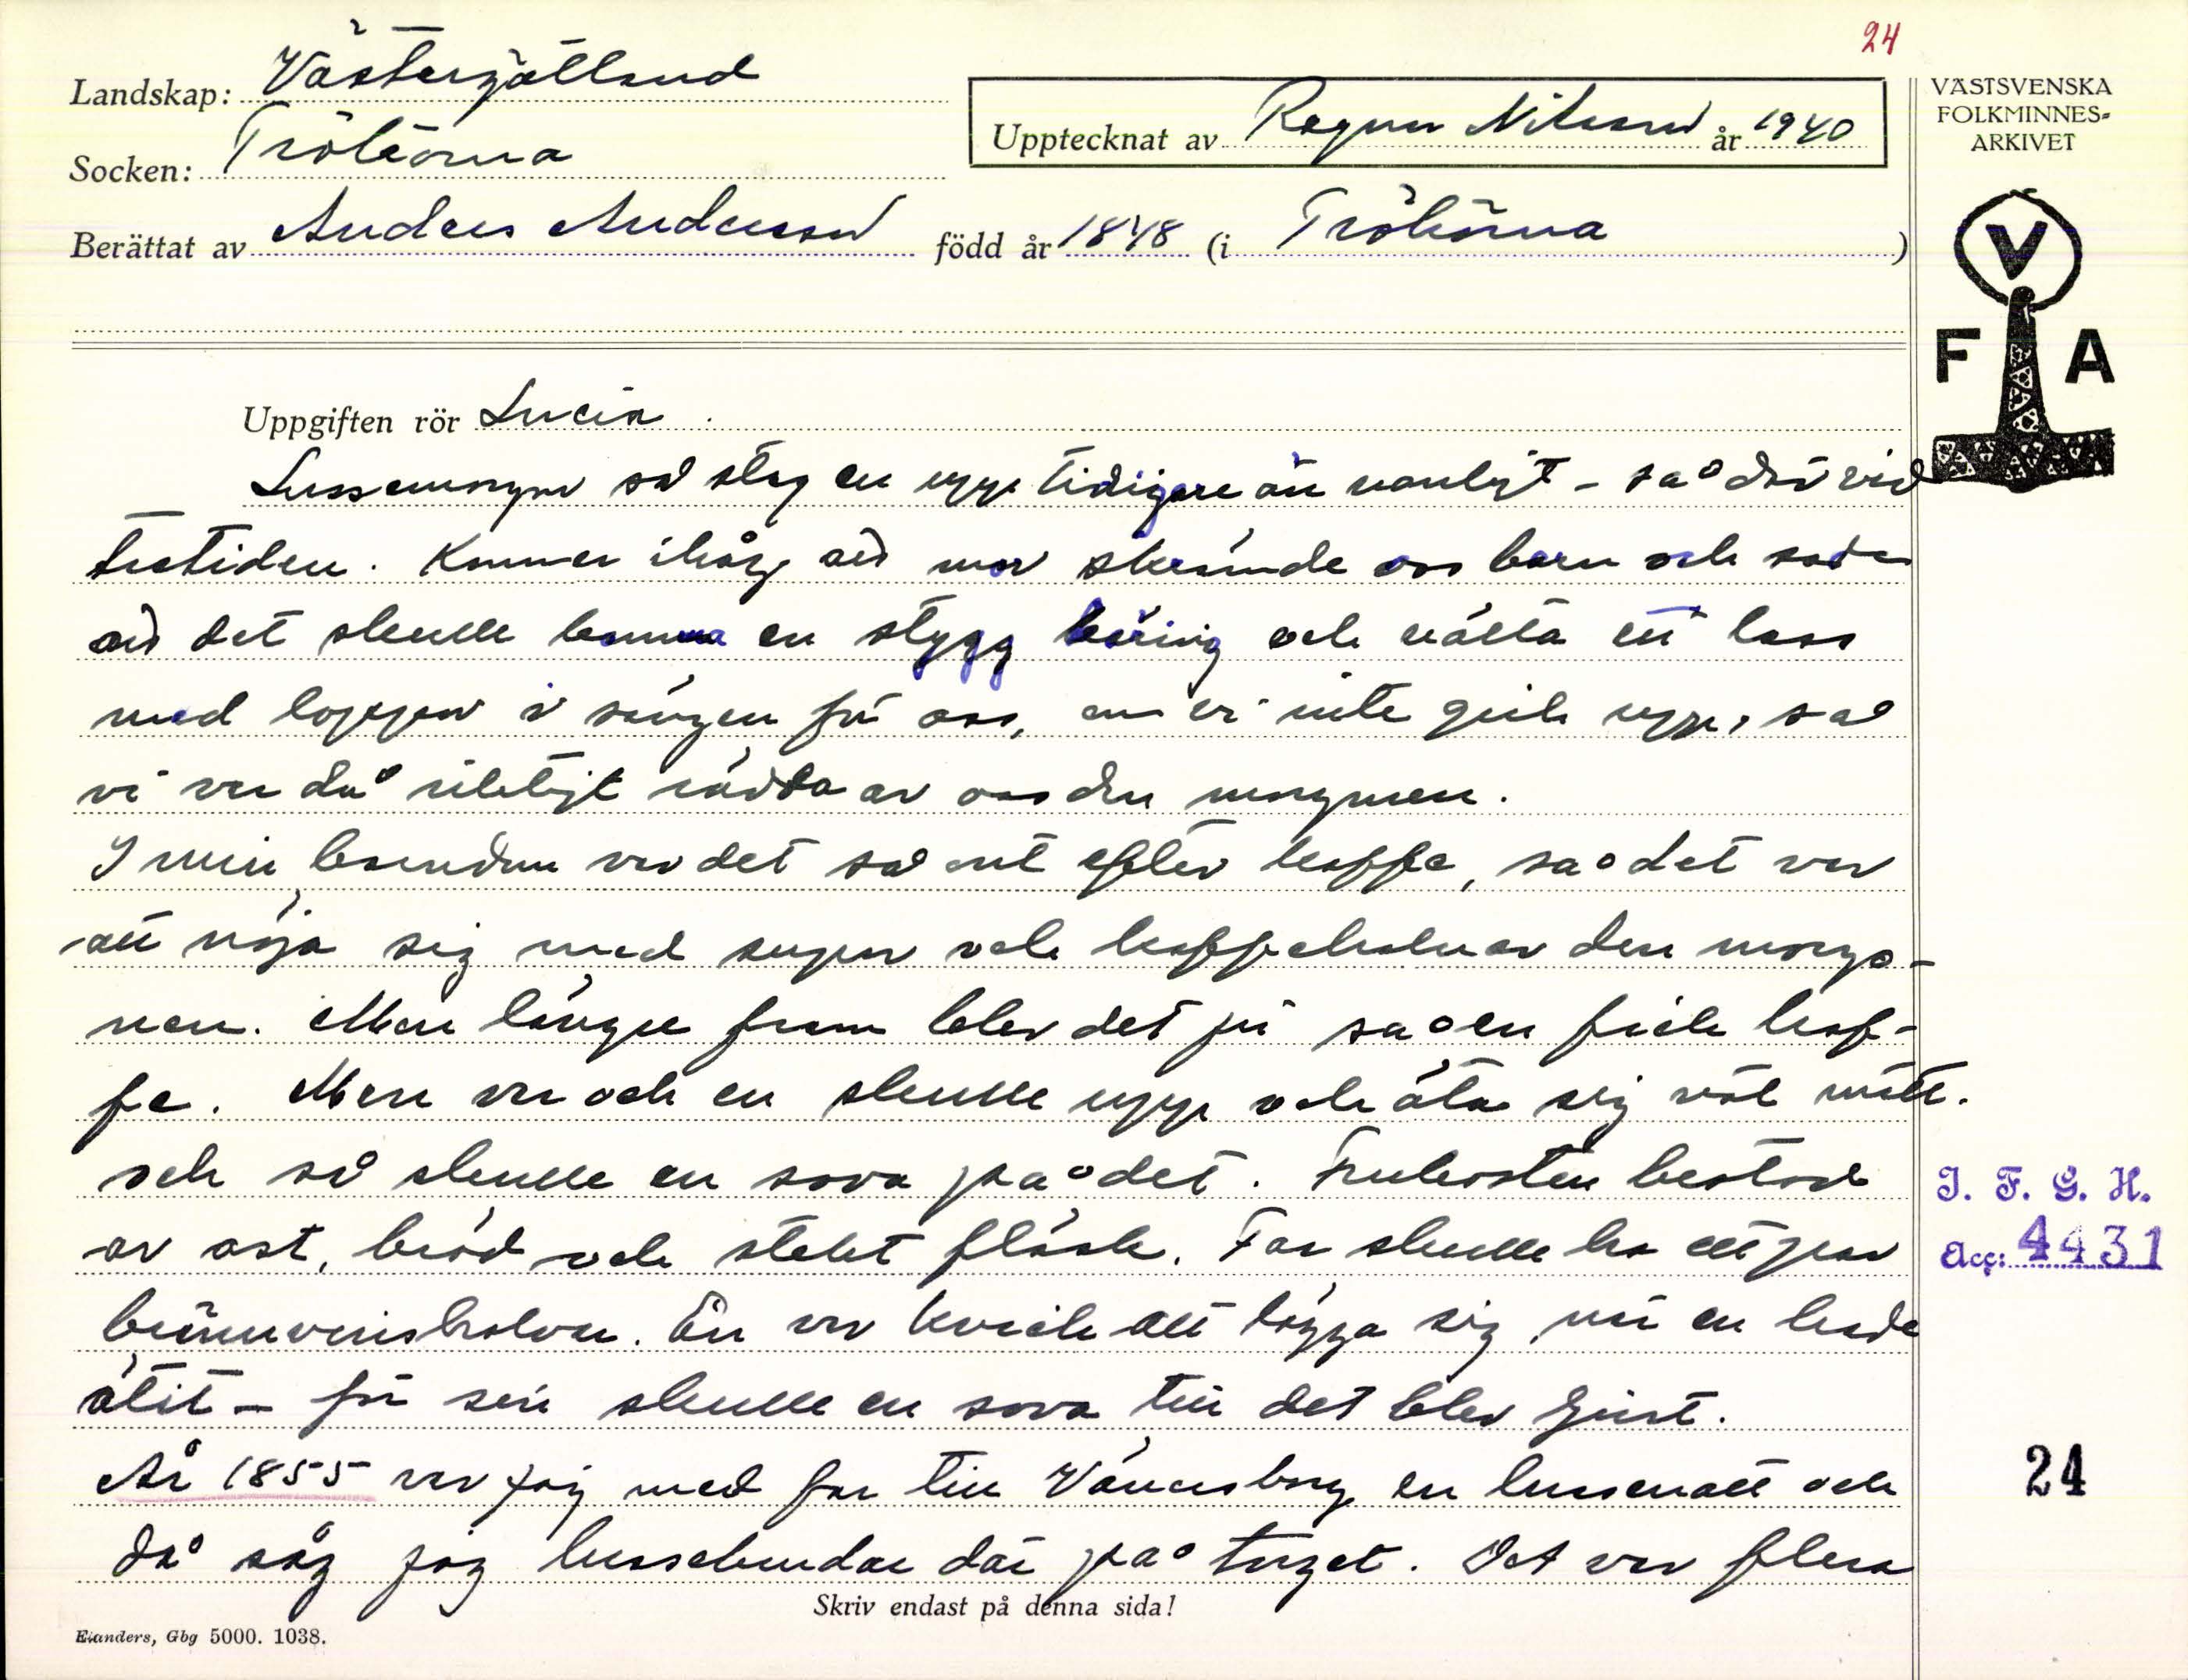 24
Landskap: Västergötland
Upptecknat av Ragnar Nilsson år 1940
VÄSTSVENSKA
FOLKMINNES-
ARKIVET
Socken: Trökörna
Berättat av Anders Andersson född år 1848 (i Trökörna)
V
F A
Uppgiften rör Lucia.
Lussemorgon så steg en upp tidigare än vanligt - så där vid
tretiden. Kommer ihåg att mor skrämde oss barn och sade
att det skulle komma en stygg käring och välta ett lass
med loppor i sängen för oss, om vi inte gick upp, så
vi var då riktigt rädda av oss den morgonen.
I min barndom var det så ont efter kaffe, så det var
att nöja sig med supar och kaffehalvor den morgo-
nen. Men längre fram blev det ju så en fick kaf-
fe. Men var och en skulle upp och äta sig väl mätt.
och så skulle en sova på det. Frukosten bestod
av ost, bröd och stekt fläsk. Far skulle ha ett par
brännvinshalvor. En var kvick att lägga sig när en hade
ätit - för sen skulle en sova till det blev ljust.
År 1855 var jag med far till Vänersborg en lussenatt och
då såg jag lussebrudar där på torget. Det var flera
Skriv endast på denna sida!
Elanders, Gbg 5000. 1038.
I. F. G. H.
Acc: 4431
24